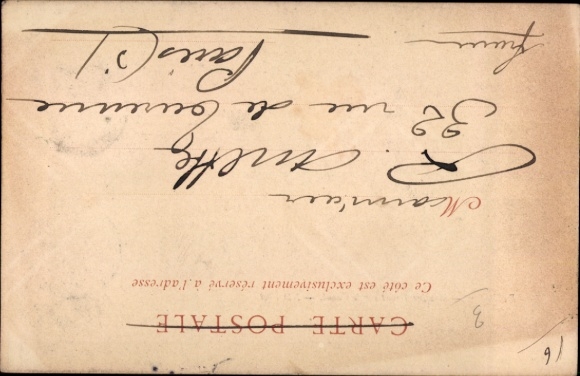 CARTE POSTALE
Ce côté est exclusivement réservé à l'adresse
Monsieur
P.
32 rue de Turenne
Paris (3')
3
16